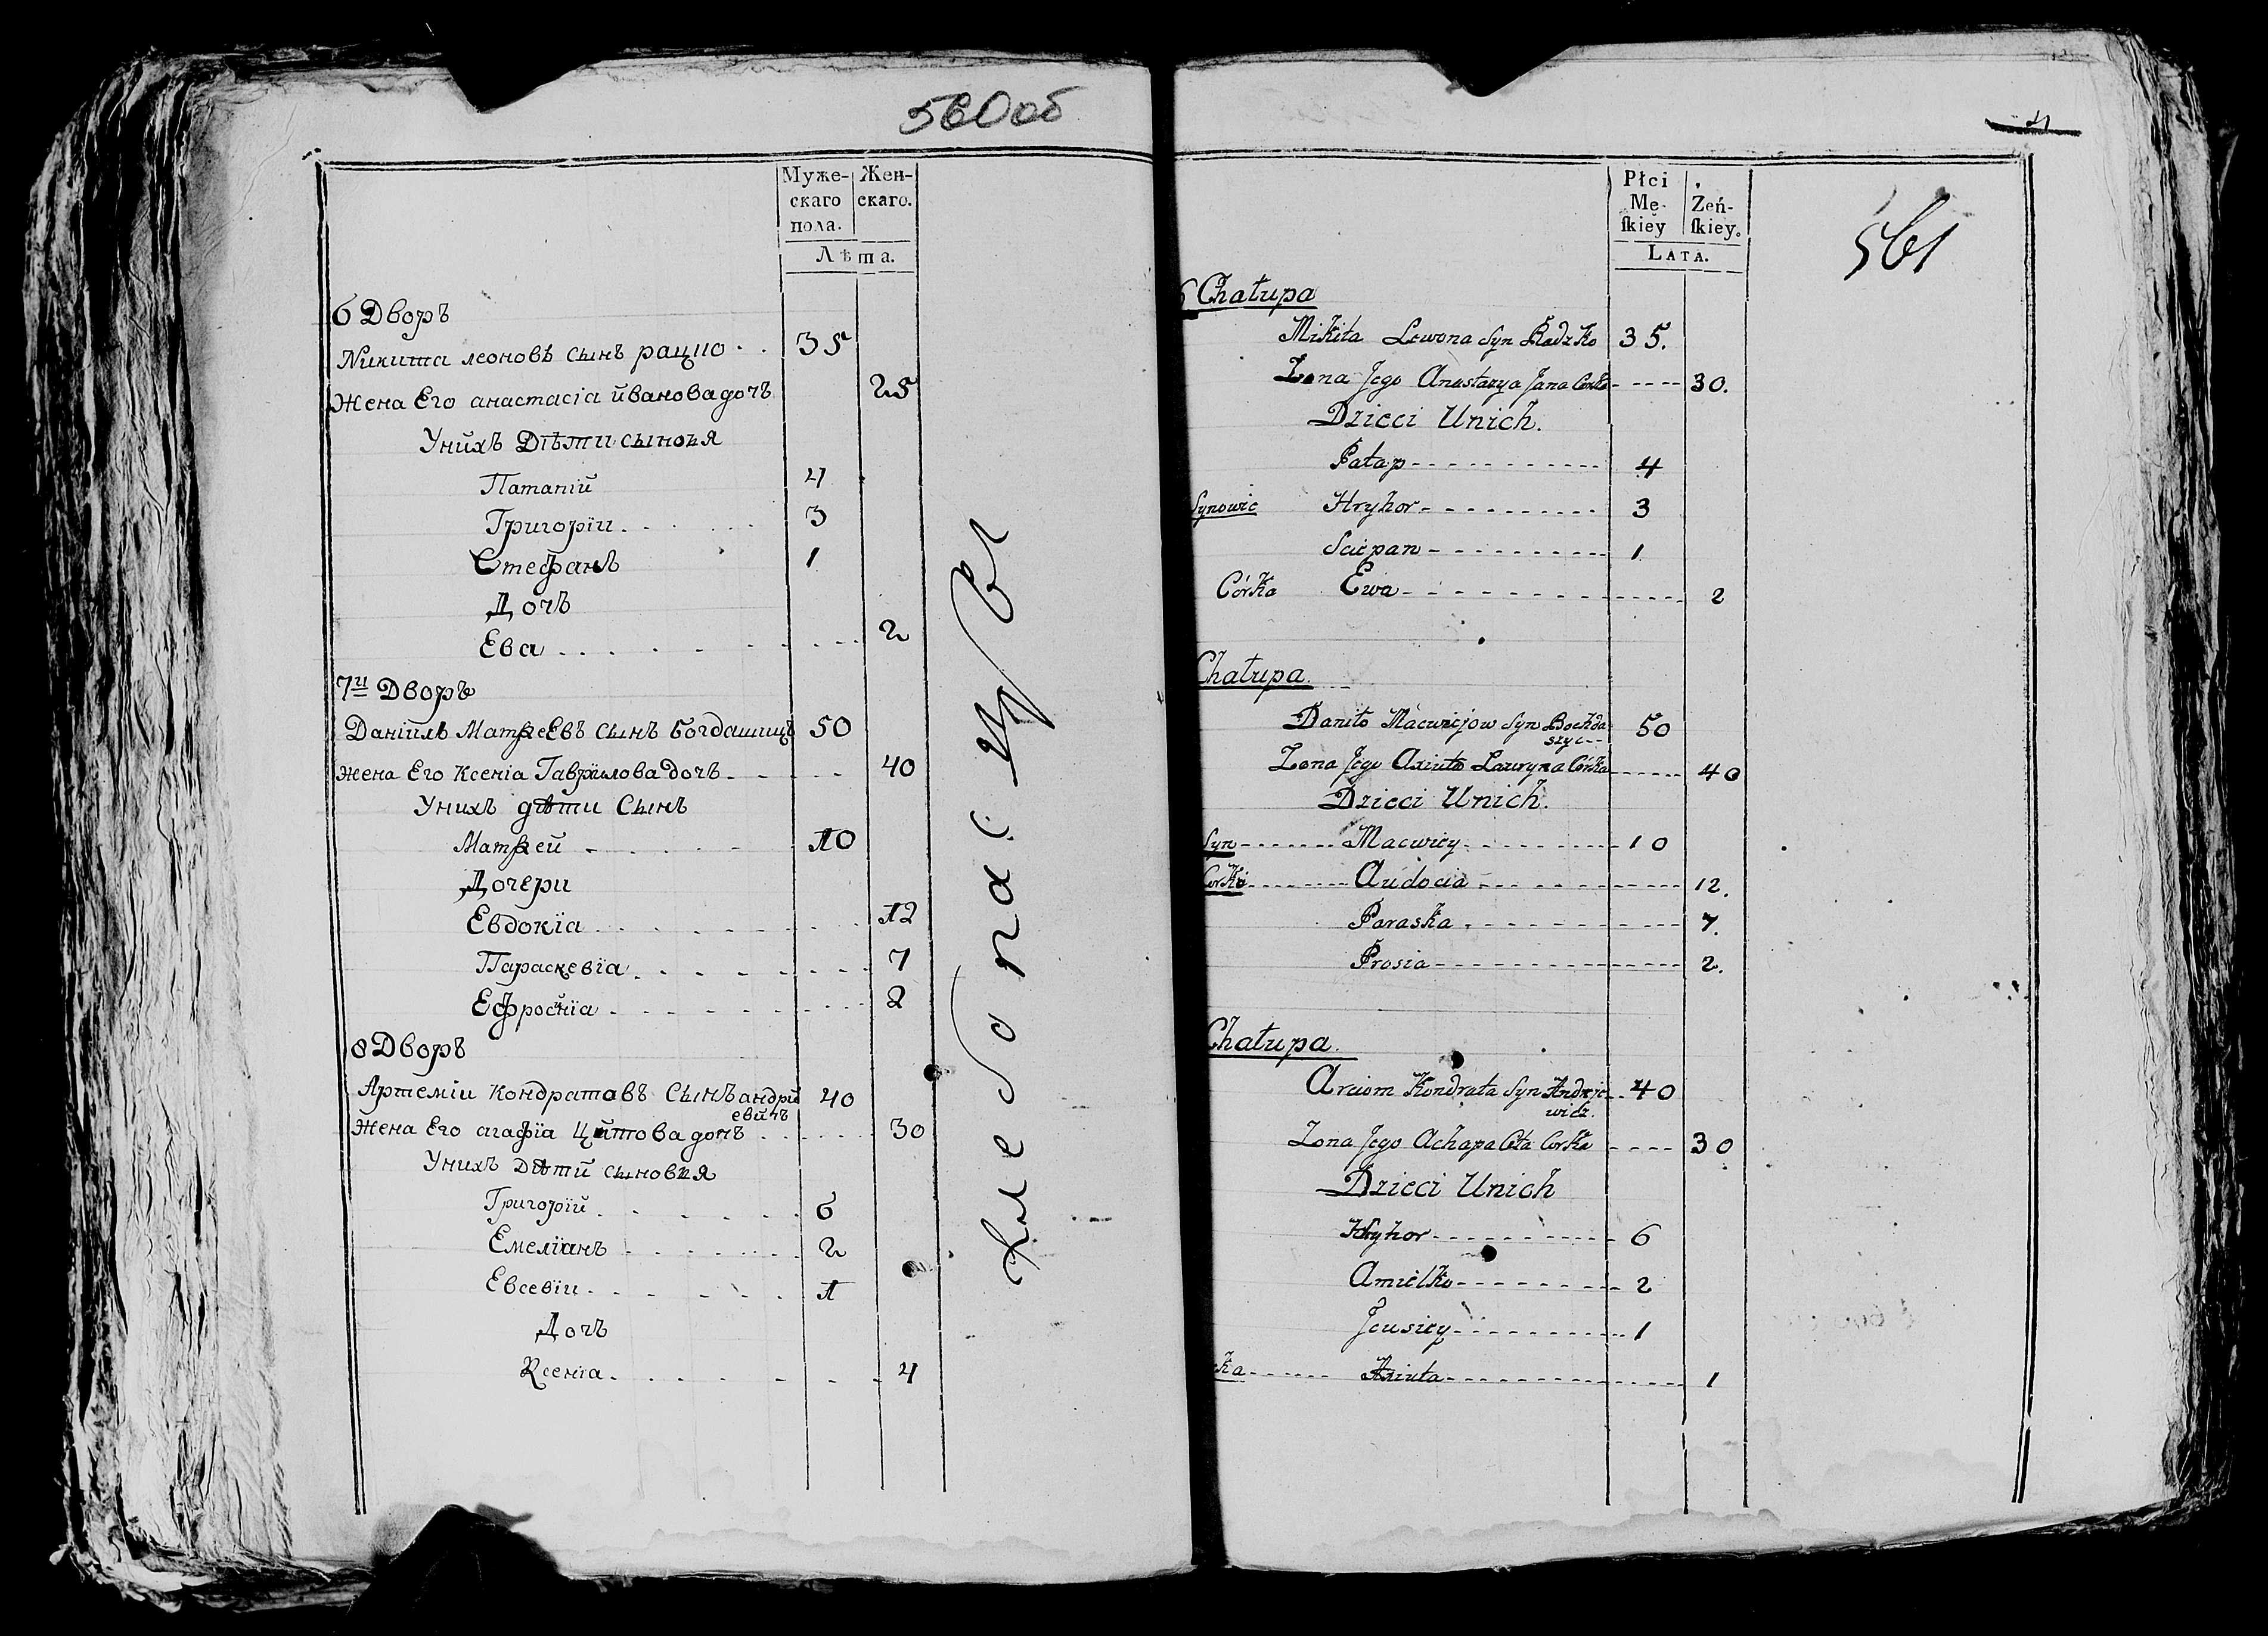 560об
Муже- Жен-
скаго скаго.
пола.
Лѣта.
6 Дворъ
Никита леоновъ сынъ рацно 35
Жена Его анастасіа ивановадочъ 25
Унихъ Дѣти сыновя
Патапій 4
Григорїи 3
Стефанъ 1
Дочъ
Ева 2
7й Дворъ
Даніилъ Матѳеевъ сынъ Богдашицъ 50
Жена Его Ксеніа Гаврилова дочъ 40
Унихъ дѣти Сынъ
Матѳей 10
Дочери
Евдокїа 12
Параскевїа 7
Ефросинїа 2
8 Дворъ
Артеміи Кондратовъ Сынъ андрій
евичъ 40
Жена Его агафїа Цитова дочъ 30
Унихъ Дѣти сыновя
Григорїй 6
Емелїанъ 2
Евсевїи 1
Дочъ
Ксенїа 4
4
561
Płci Zeń-
Mę- skiey.
skiey
Lata.
6 Chałupa
Mikita Lewona Syn Radzko 35.
Zona Jego Anastazya Jana Corka 30.
Dzieci Unich.
Patap 4
Synowie Hryhor 3
Sciepan 1
Córka Ewa 2
Chałupa
Daniło Maćwiejow Syn Bochda
szyc 50
Zona Jego Axiuta Lauryna Córka 40
Dzieci Unich.
Syn Maćwiey 10
Corki Audocia 12.
Paraska 7.
Prosia 2.
Chałupa
Arciom Kondrata Syn Andrzie
wicz. 40
Zona Jego Achapa Cita Corka 30
Dzieci Unich
Hryhor 6
Amielko 2
Jeusiey 1
ka Axiuta 1